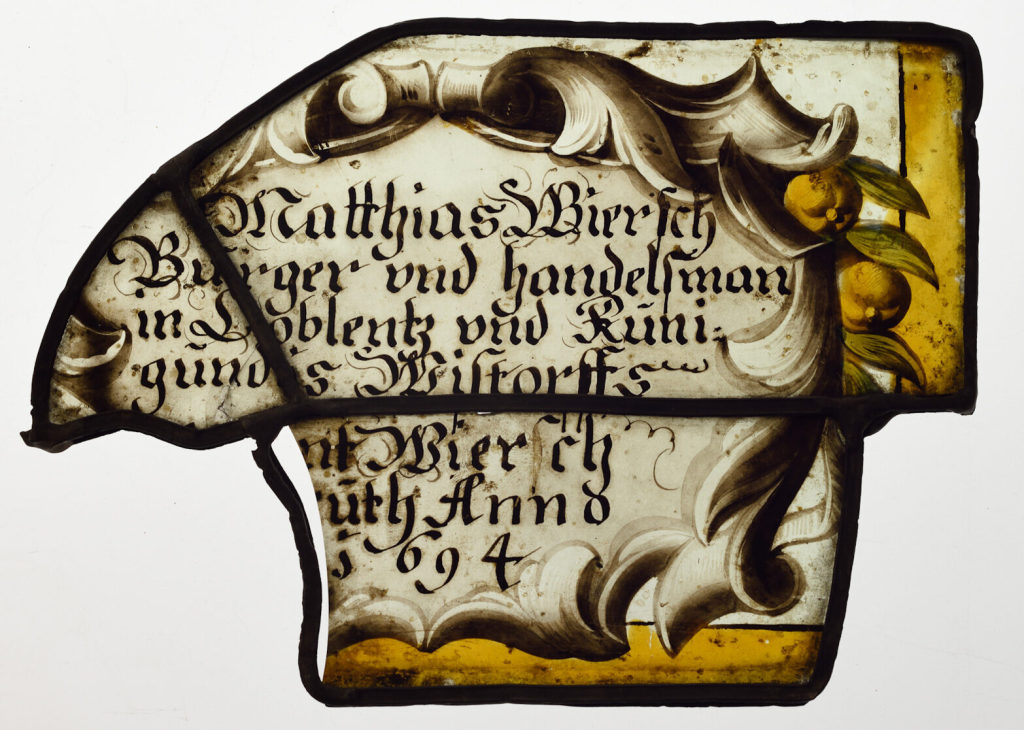 Matthias Wierſch
Burger vnd handelſman
in Coblentz vnd Kūni.
gūndis Wiſtorffs
nt Wierſch
ūth Anno
1694